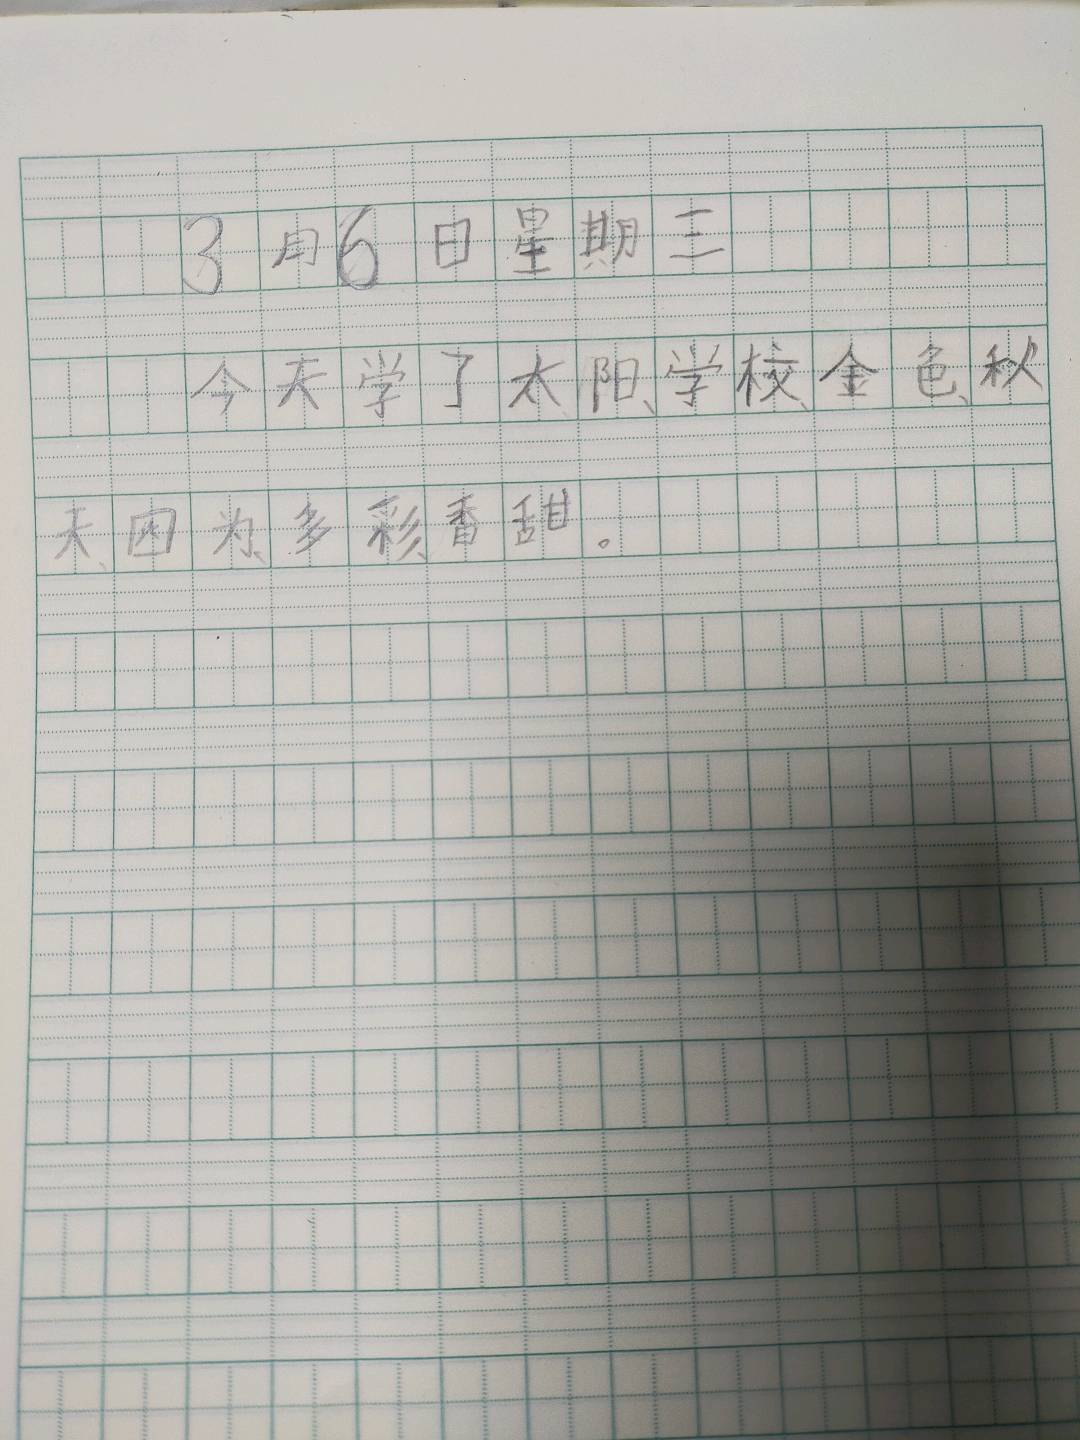 3月6日星期三
今天学了太阳、学校、金色、秋
天、因为、多彩、香甜。